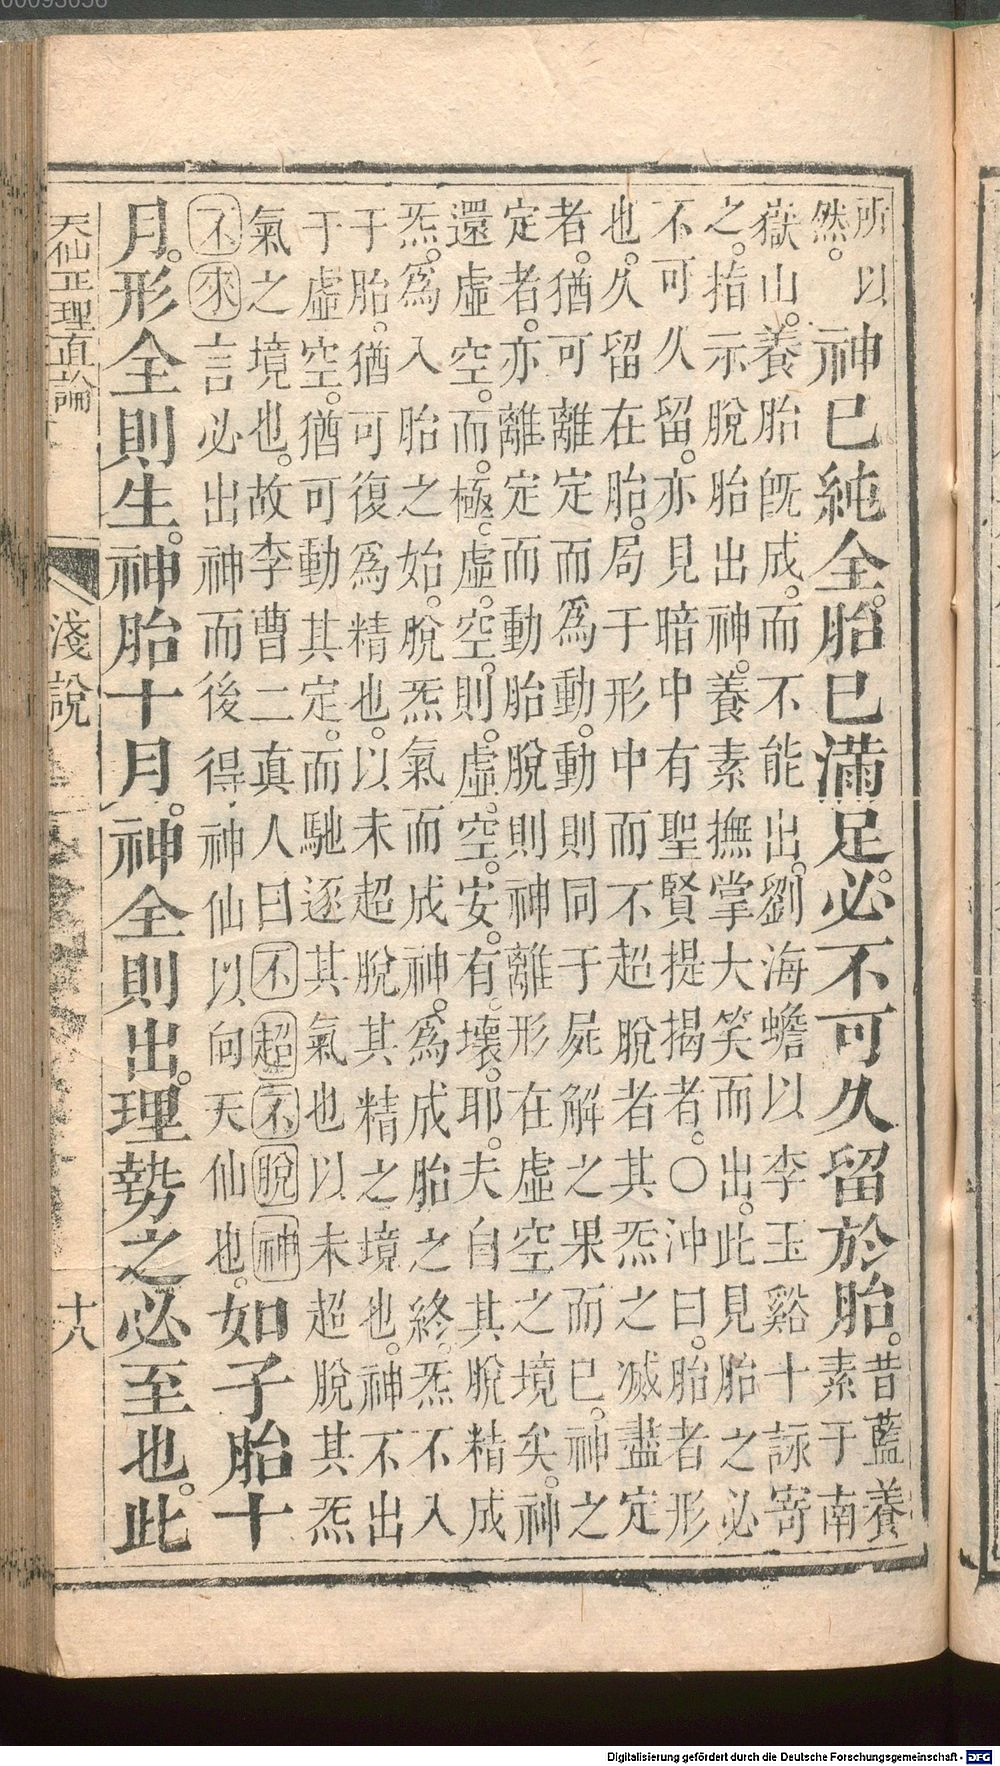 00093056
所以
然。
神已純全。胎已滿足。必不可久留於胎。
昔藍養
素于南
嶽山。養胎既成。而不能出。劉海蟾以李玉谿十詠寄
之。指示脫胎出神。養素撫掌大笑而出。此見胎之必
不可久留。亦見暗中有聖賢提揭者。○冲曰。胎者形
也。久留在胎。局于形中而不超脫者其炁之滅盡定
者。猶可離定而為動。動則同于屍解之果而已。神之
定者。亦離定而動胎脫則神離形在虛空之境矣。神
還虛空。而。極虛。空。則。虛。空。安。有。壞。耶。夫自其脫精成
炁。為入胎之始。脫炁氣而成神。為成胎之終。炁不入
于胎。猶可復為精也。以未超脫其精之境也。神不出
于虛空。猶可動其定。而馳逐其氣也以未超脫其炁
氣之境也。故李曹二真人曰不超不脫神
不來言必出神而後得神仙以向天仙也。如子胎十
月。形全則生。神胎十月。神全則出。理勢之必至也。此
天仙正理直論
淺說
十八
Digitalisierung gefördert durch die Deutsche Forschungsgemeinschaft - DFG